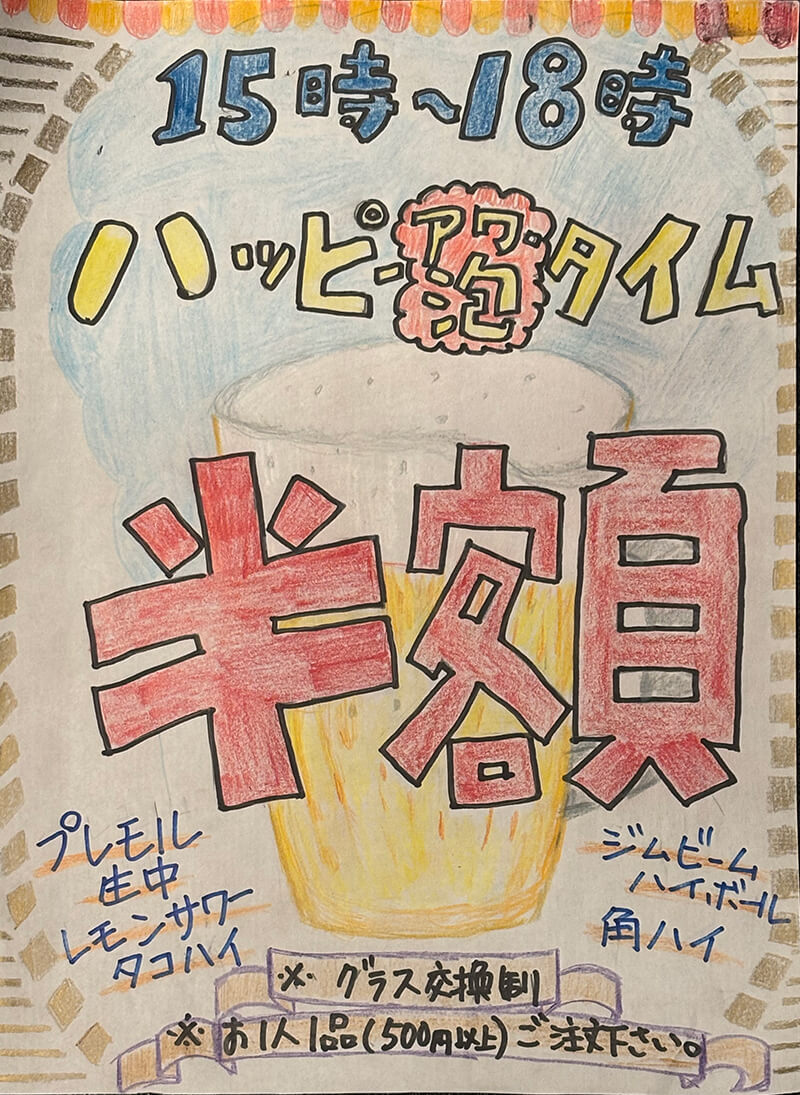 15時~18時
ハッピー泡タイム
アワー
半額
プレモル
生中
レモンサワー
タコハイ
ジムビーム
ハイボール
角ハイ
※グラス交換制
※お1人1品(500円以上)ご注文下さい。